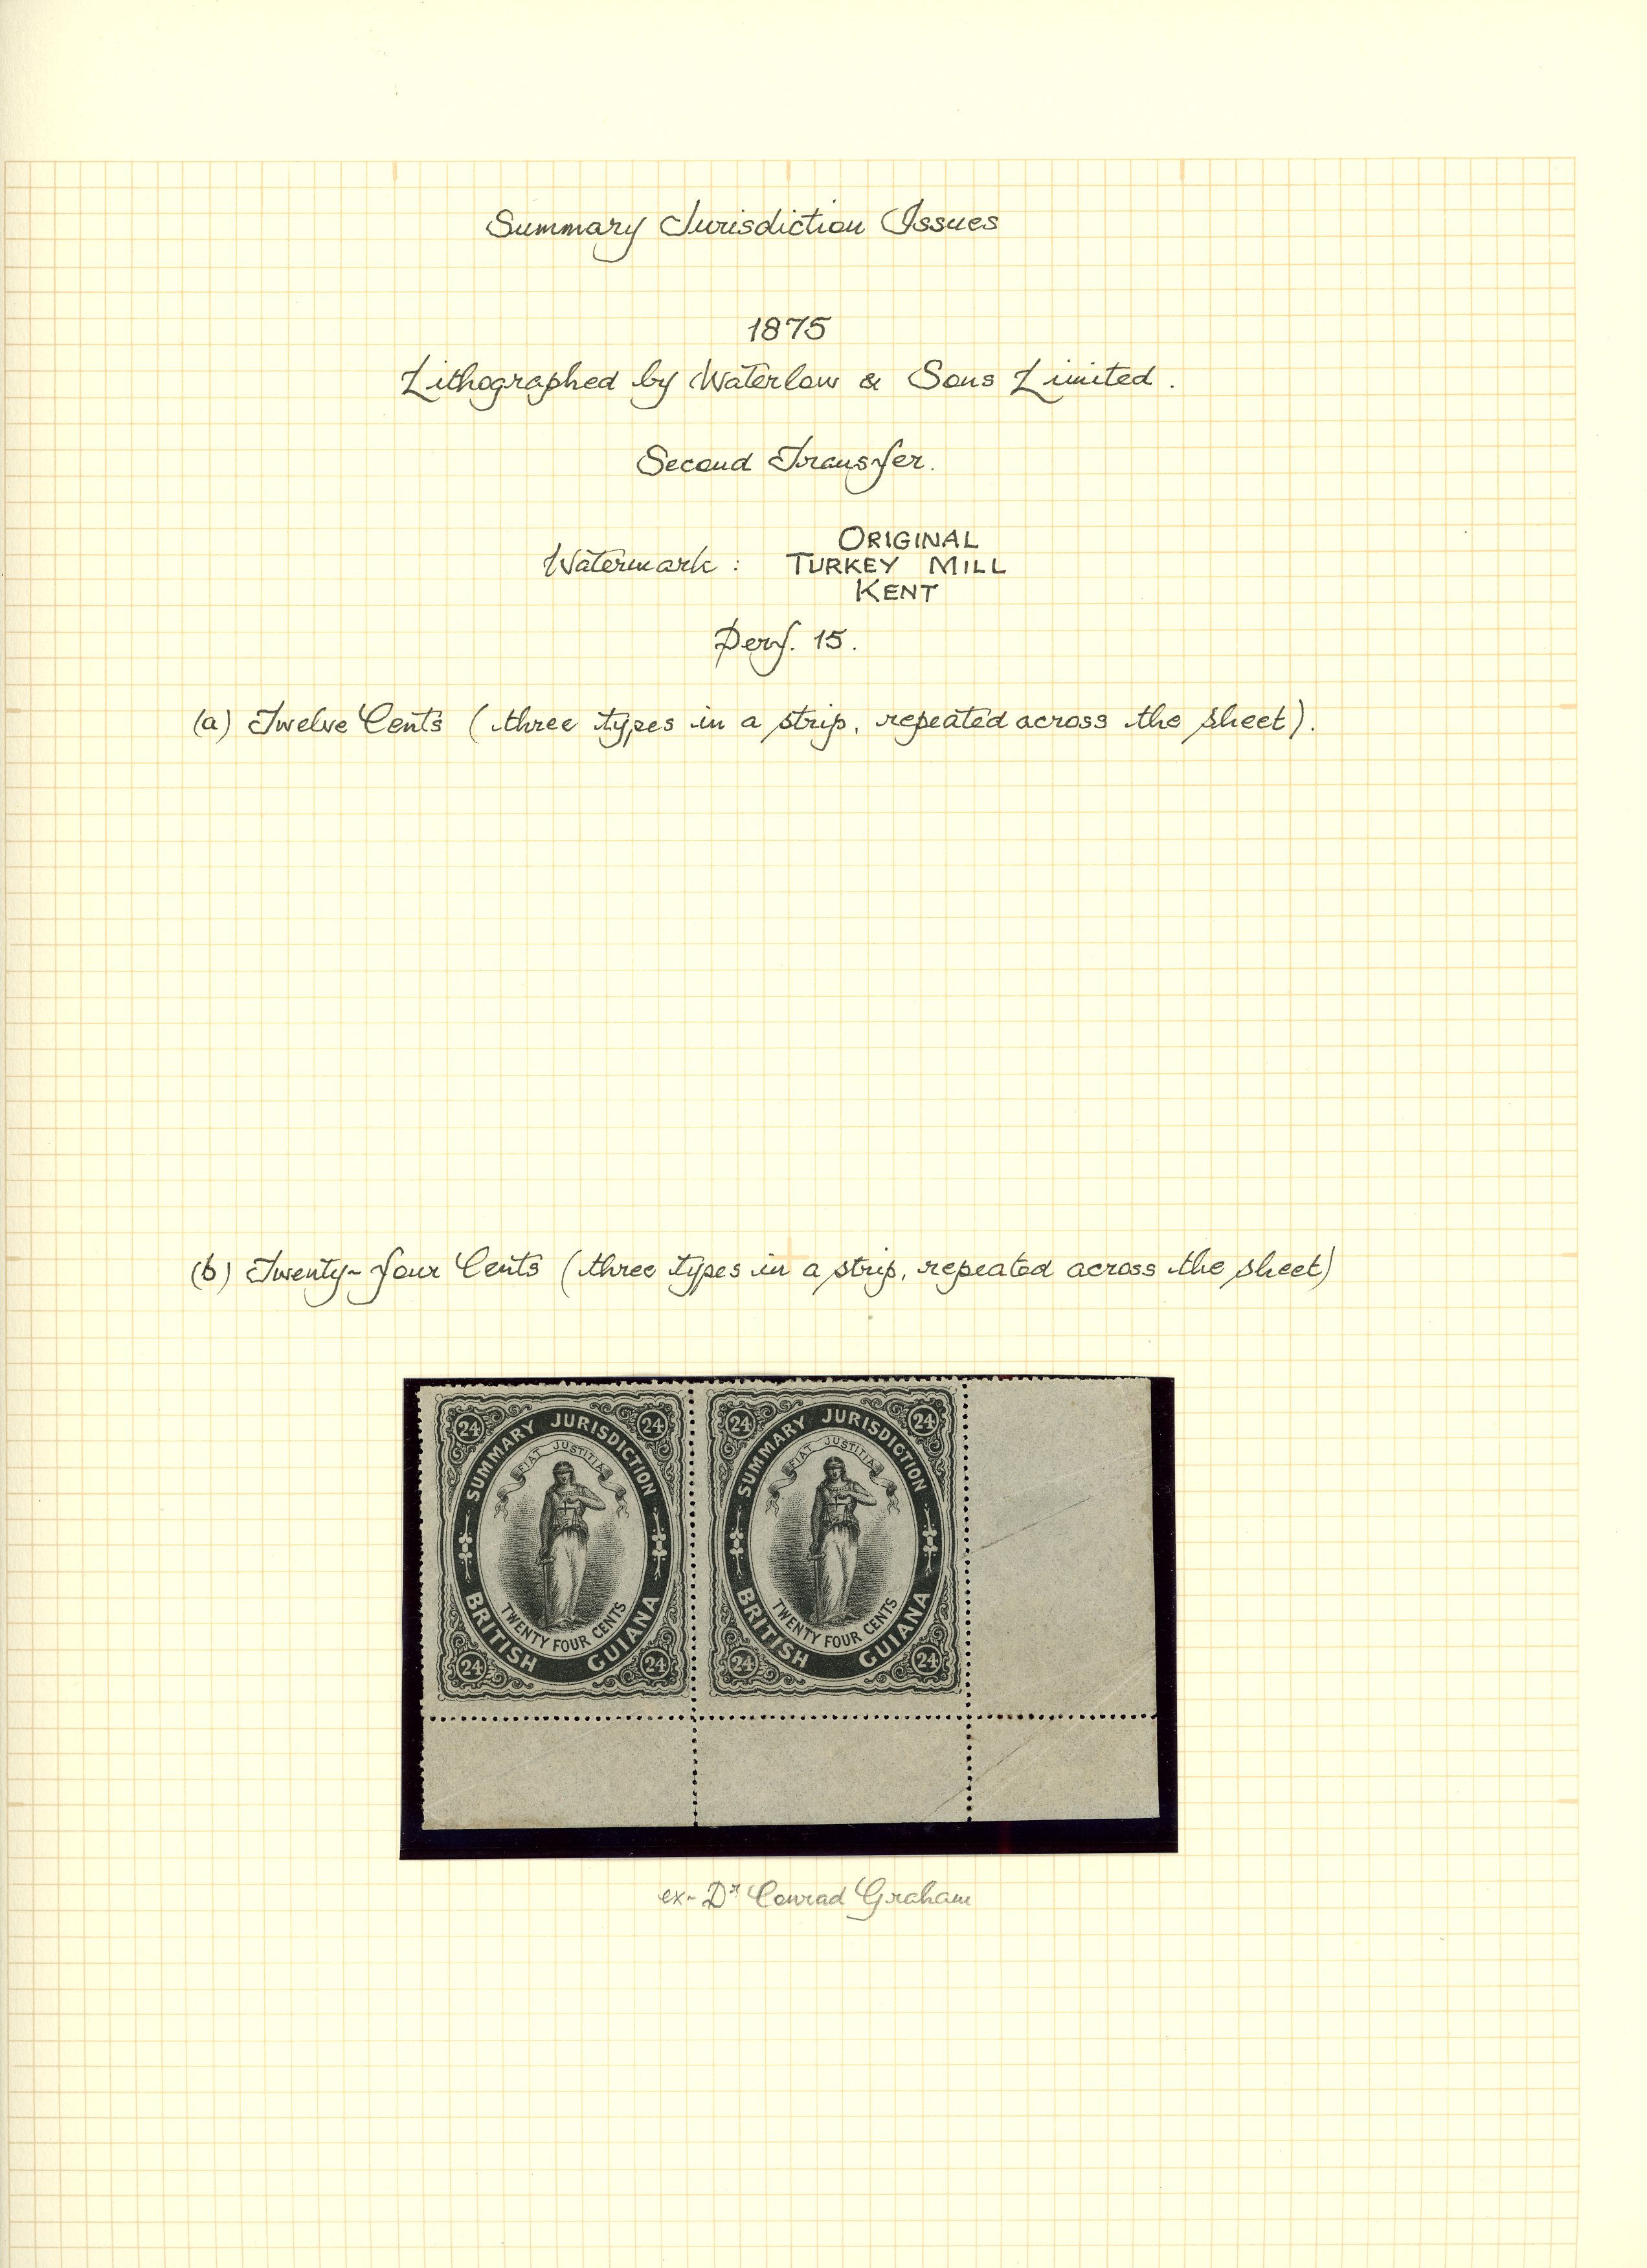 Summary Jurisdiction Issues
1875
Lithographed by Waterlow & Sons Limited.
Second Transfer.
Watermark: ORIGINAL
TURKEY MILL
KENT
Perf. 15.
(a) Twelve Cents (three types in a strip, repeated across the sheet).
(b) Twenty-four Cents (three types in a strip, repeated across the sheet)
24 24
SUMMARY JURISDICTION
FIAT JUSTITIA
TWENTY FOUR CENTS
BRITISH GUIANA
24 24
24 24
SUMMARY JURISDICTION
FIAT JUSTITIA
TWENTY FOUR CENTS
BRITISH GUIANA
24 24
ex-Dr Conrad Graham